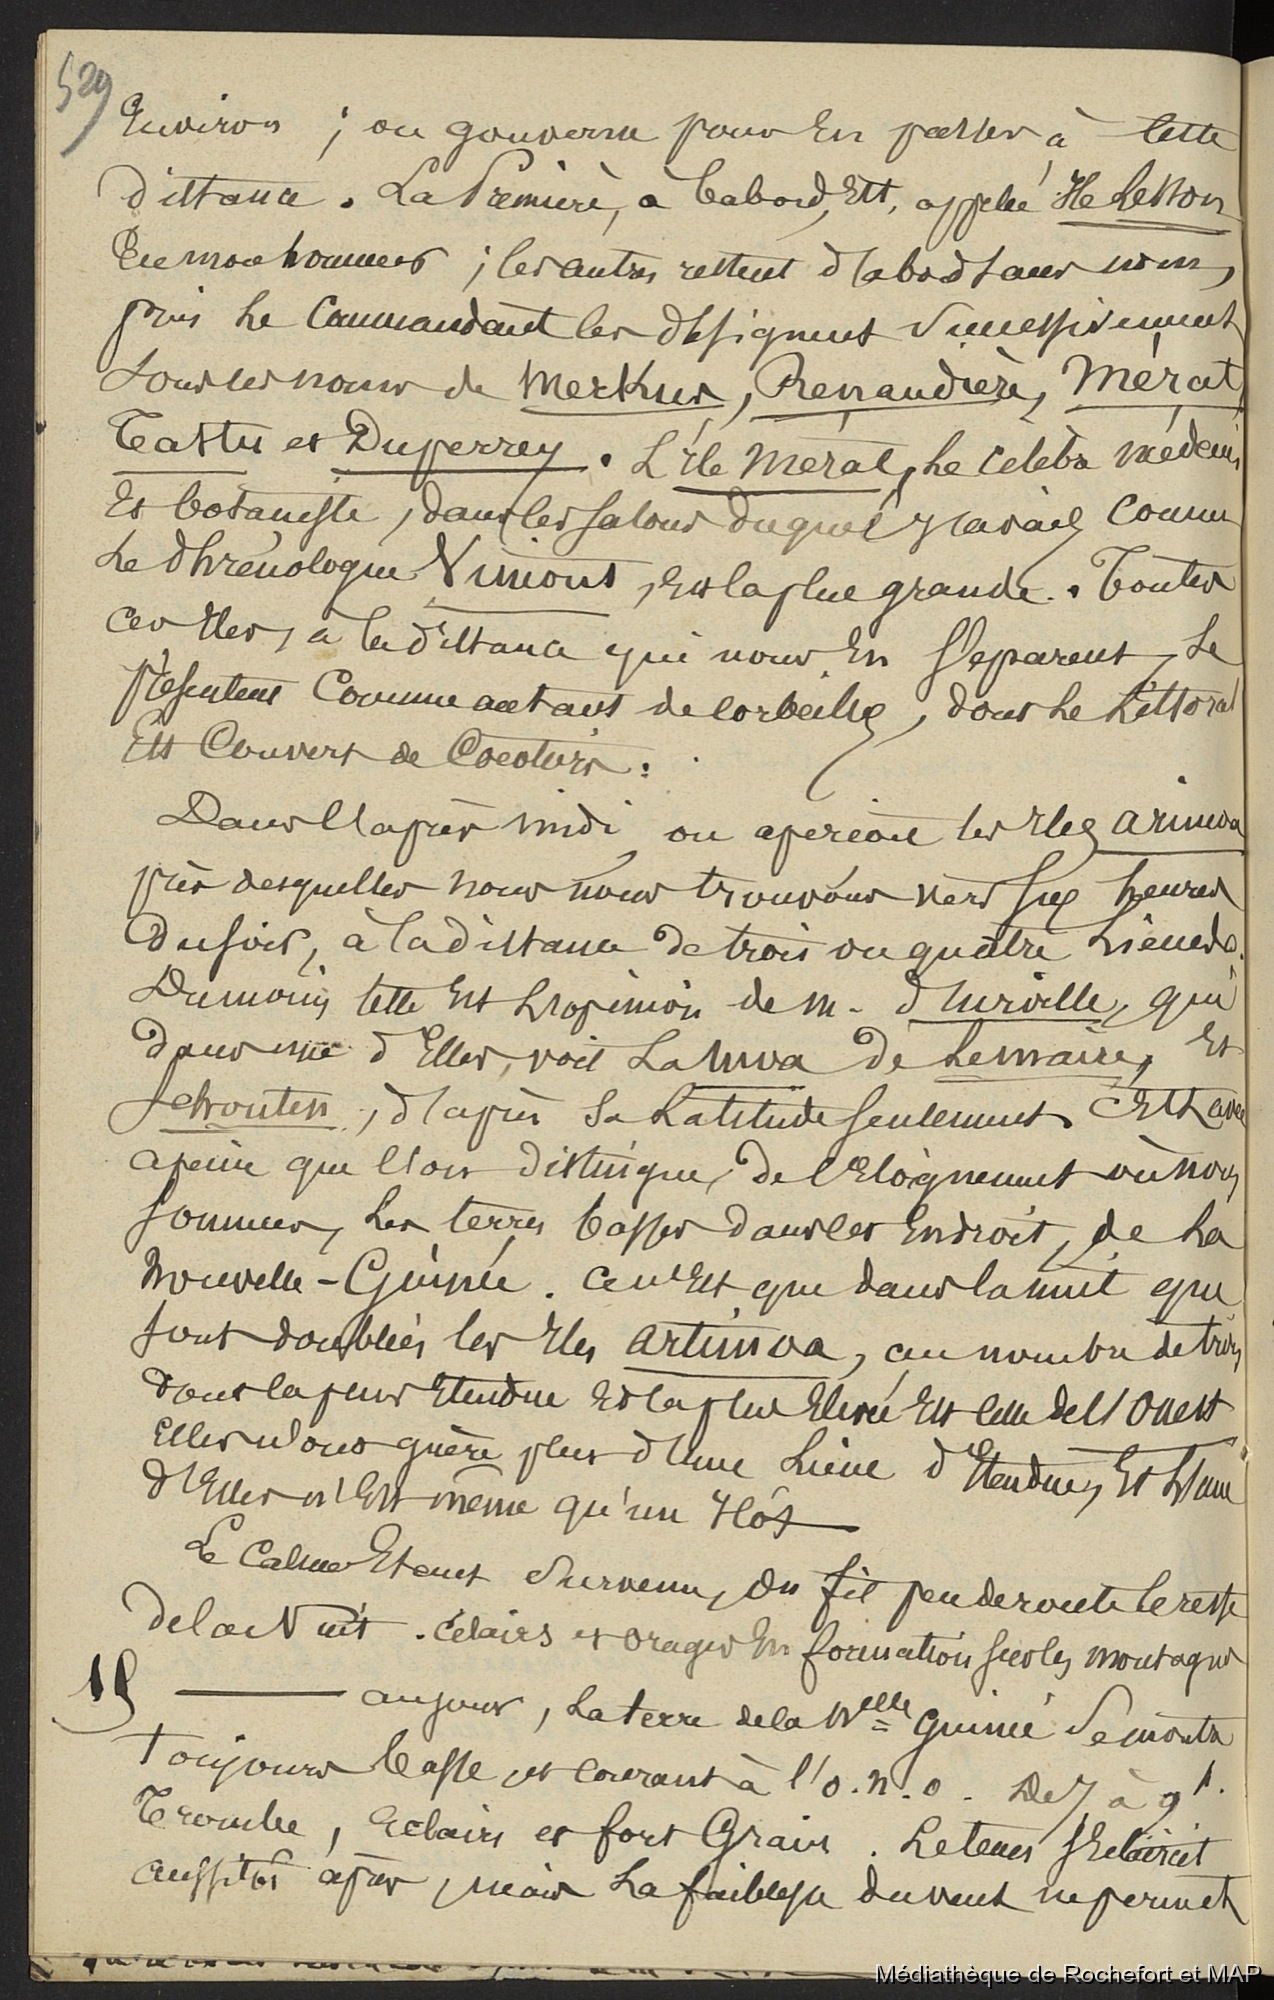 529
Environ ; on gouverne pour En passer à Cette
distance. La Première, a babord, Est, appelée Ile Lesson
En mon honneur ; les autres restent d'abord sans nom,
puis Le Commandant les désignent Successivement
sous les noms de Merkus, Renaudière, Mérat,
Tastu et Duperrey. L'Ile Mérat, Le célèbre médecin
Et botaniste, dans les salons duquel j'avais connu
Le Phrénologue Vimont, Est la plus grande. Toutes
ces Iles, à la distance qui nous En séparent, Se
présentent Comme autant de corbeilles, dont Le Littoral
Est Couvert de Cocotiers.
Dans l'après midi, on aperçoit les Iles Arimoa
près desquelles nous nous trouvons vers six heures
du soir, à la distance de trois ou quatre Lieues.
Du moins telle Est L'opinion de M. d'Urville, qui
dans une d'Elles, voit La Moa de Lemaire, Et
Schouten, d'après sa Latitude seulement. C'Est avec
a peine que l'on distingue, de l'Eloignement où nous
sommes, Les terres basses dans les Endroit, de La
Nouvelle-Guinée. Ce n'Est que dans la nuit que
sont doublées les Iles Artimoa, au nombre de trois
dont la plus Etendue Et la plus Elevée Est celle de l'Ouest
Elles n'ont guère plus d'une Lieue d'Etendue, Et L'une
d'Elles n'Est même qu'un Ilôt
Le Calme Etant survenu, On fit peu de route le reste
de la Nuit. éclairs et orages En formation sur les montagnes
19 ——— au jour, La terre de la Nelle Guinée Se montre
Toujours basse, et courant à l'o.n.o. De 7 à 9h.
Trombe, Eclairs et fort Grain. Le tems s'Eclaircit
aussitôt après, mais La faiblesse du vent ne permet
Médiathèque de Rochefort et MAP